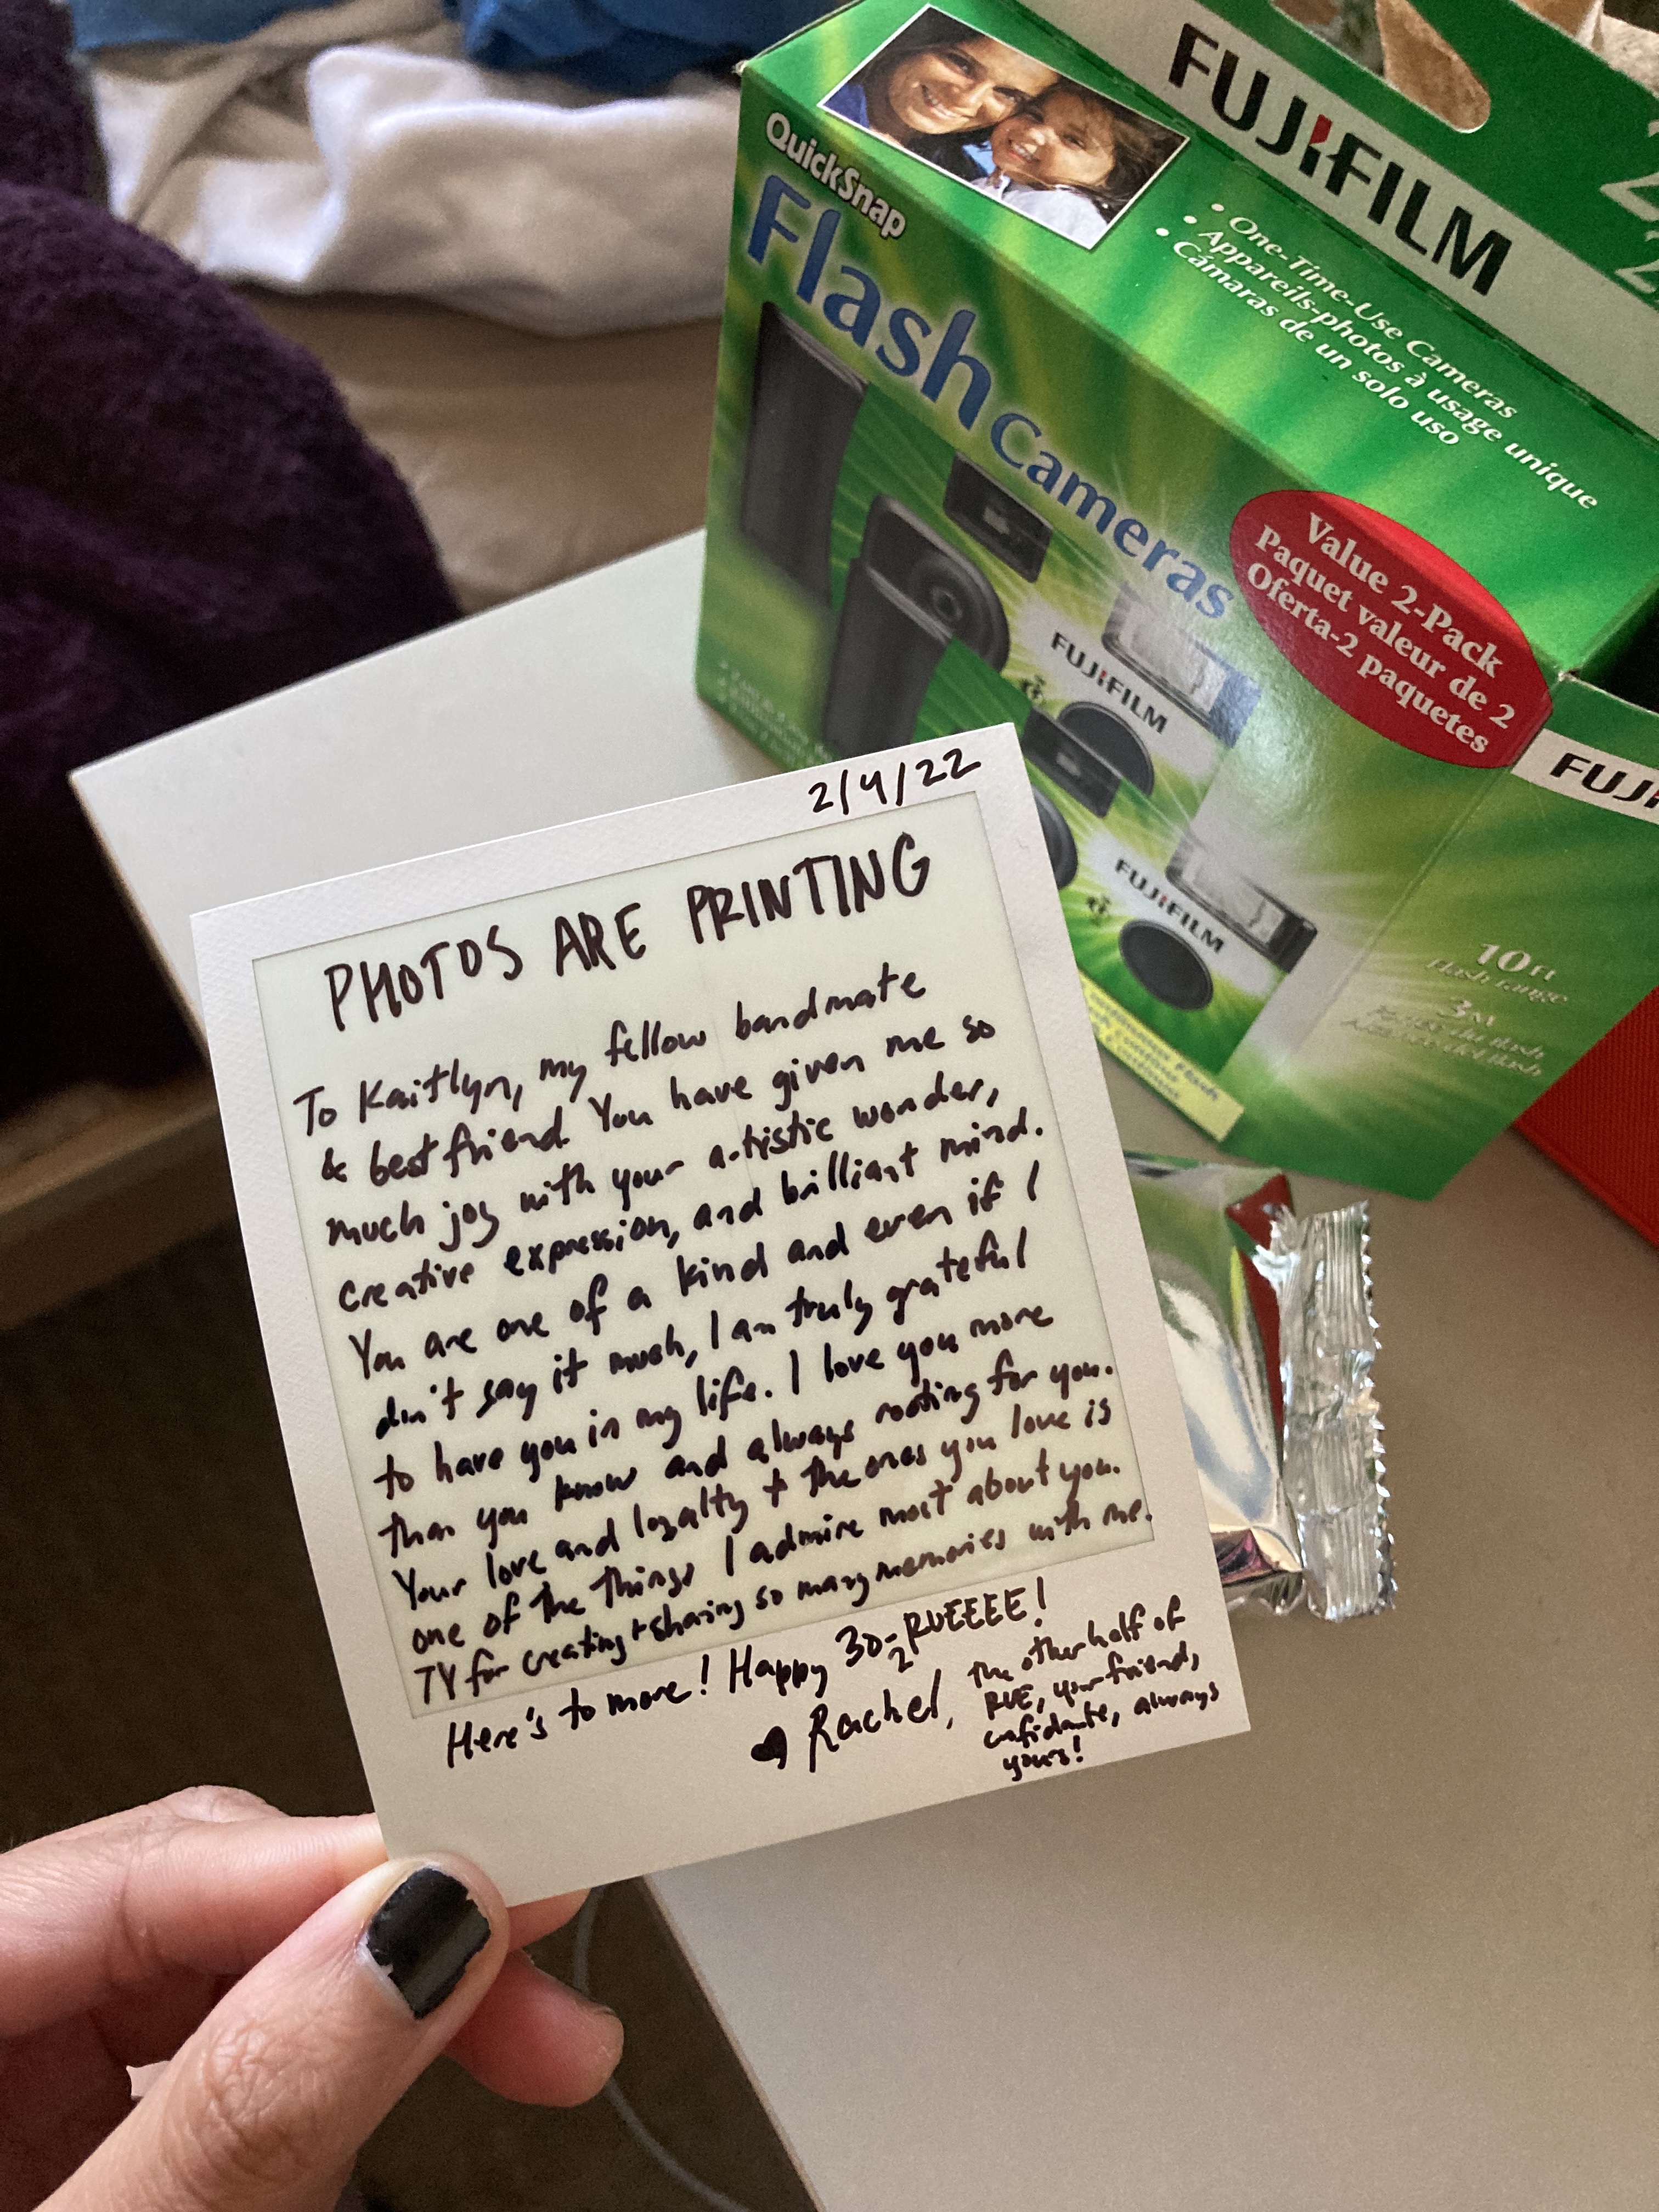 FUJIFILM
2
2
QuickSnap
Flash Cameras
• One-Time-Use Cameras
• Appareils-photos à usage unique
• Cámaras de un solo uso
Value 2-Pack
Paquet valeur de 2
Oferta-2 paquetes
FUJIFILM
FUJIFILM
FUJI
10 FT
Flash range
3 M
2/4/22
PHOTOS ARE PRINTING
To Kaitlyn, my fellow bandmate
& best friend. You have given me so
much joy with your artistic wonder,
creative expression, and brilliant mind.
You are one of a kind and even if I
don't say it much, I am truly grateful
to have you in my life. I love you more
than you know and always rooting for you.
Your love and loyalty + the ones you love is
one of the things I admire most about you.
TY for creating + sharing so many memories with me.
Here's to more! Happy 30-2 RUEEEE!
♥ Rachel, the other half of
RUE, your friend,
confidante, always
yours!